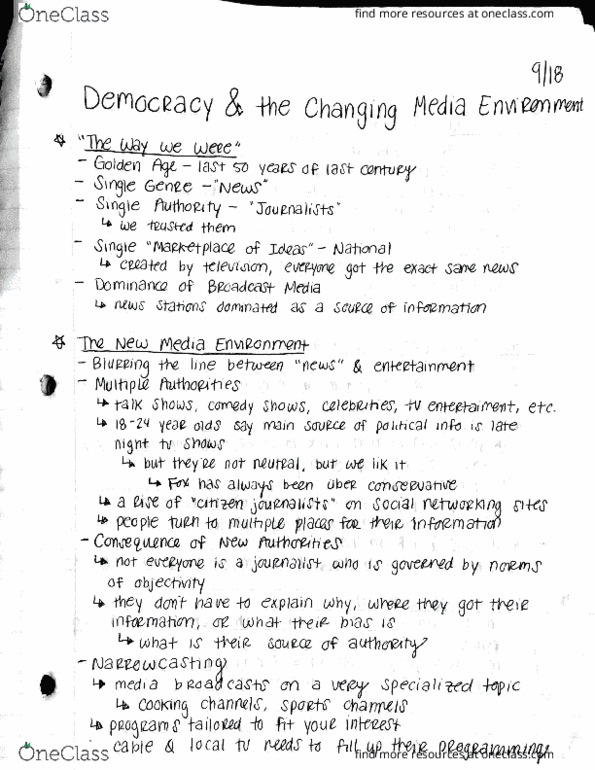 OneClass
find more resources at oneclass.com
9/18
Democracy & the Changing Media Environment
"The Way we were"
- Golden Age - last 50 years of last century
- Single Genre - "News"
- Single Authority - "Journalists"
↳ we trusted them
- Single "Marketplace of Ideas" - National
↳ created by television, everyone got the exact same news
- Dominance of Broadcast Media
↳ news stations dominated as a source of information
The New Media Environment
- Blurring the line between "news" & entertainment
- Multiple Authorities
↳ talk shows, comedy shows, celebrities, tv entertaiment, etc.
↳ 18-24 year olds say main source of political info is late
night tv shows
↳ but they're not neutral, but we lik it
↳ Fox has always been über conservative
↳ a rise of "citizen journalists" on social networking sites
↳ people turn to multiple places for their information
- Consequence of New Authorities
↳ not everyone is a journalist who is governed by norms
of objectivity
↳ they don't have to explain why, where they got their
information, or what their bias is
↳ what is their source of authority?
- Narrewcasting
↳ media broadcasts on a very specialized topic
↳ cooking channels, sports channels
↳ programs tailored to fit your interest
- cable & local tv needs to fill up their programming
OneClass
find more resources at oneclass.com